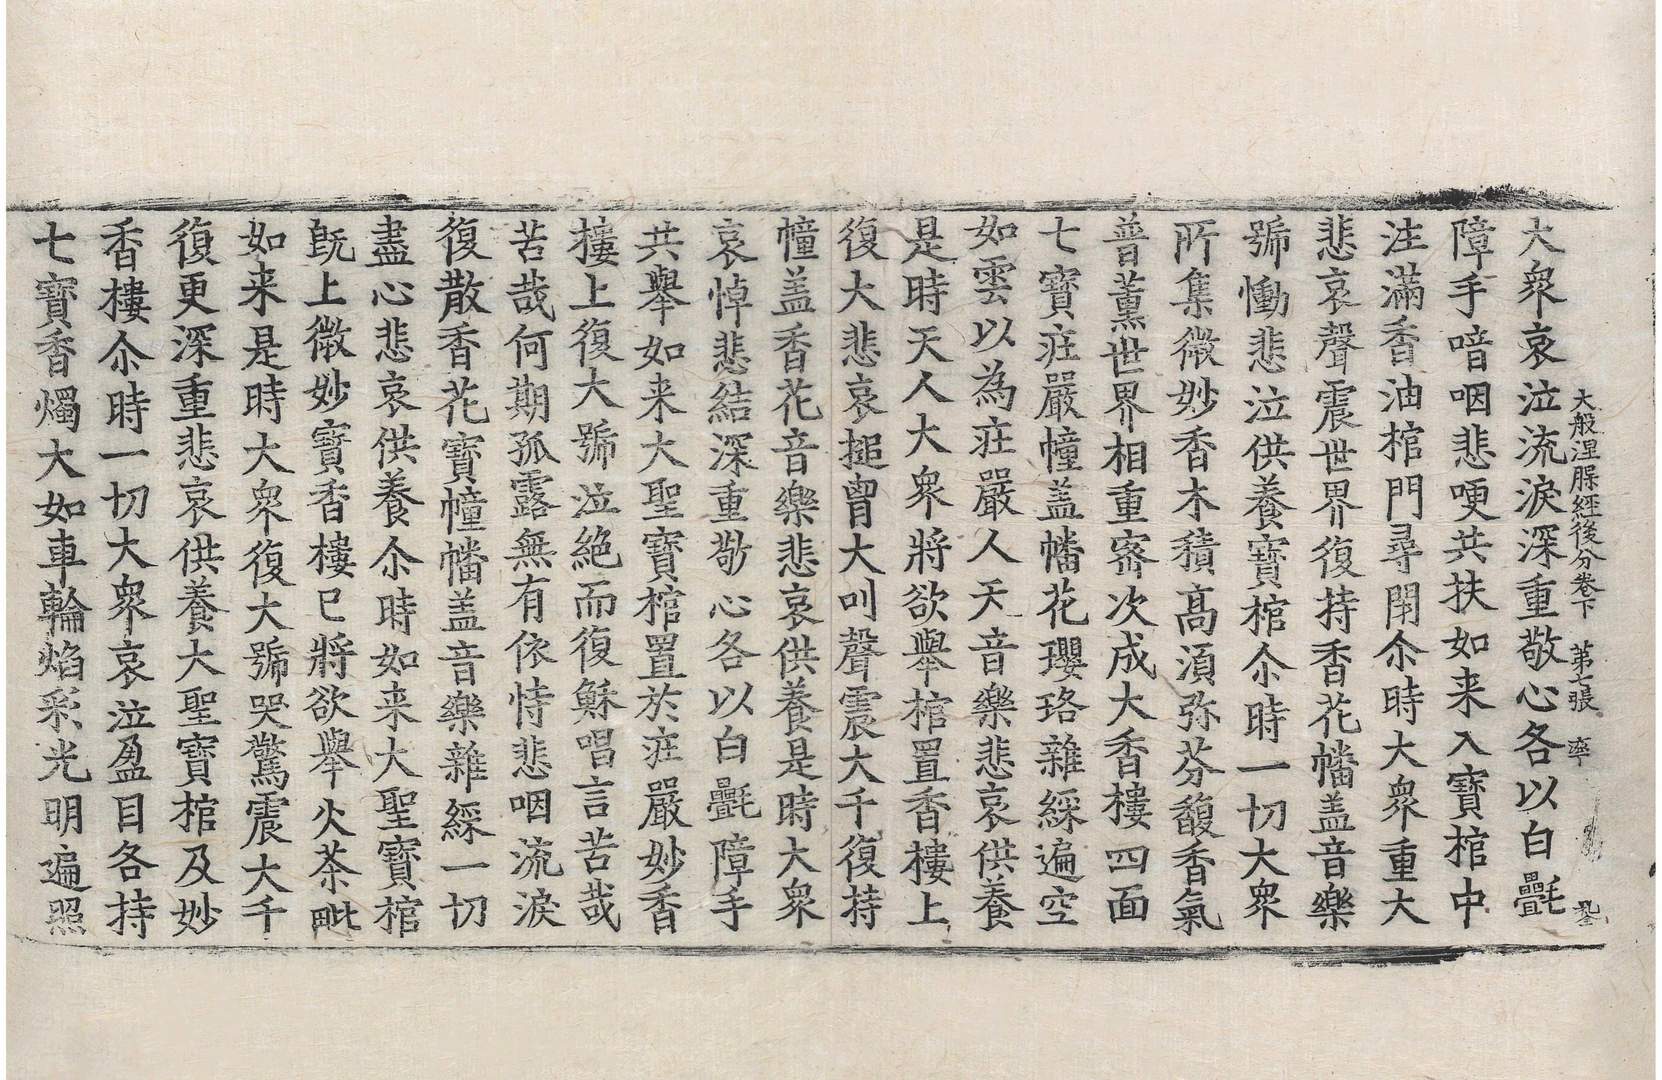 大般涅槃經後分卷下 第七張 率
大衆哀泣流淚深重敬心各以白氎
障手喑咽悲哽共扶如来入寶棺中
注滿香油棺門尋閇尒時大衆重大
悲哀聲震世界復持香花幡盖音樂
號慟悲泣供養寶棺尒時一切大衆
所集微妙香木積高湏弥芬馥香氣
普薰世界相重宻次成大香樓四面
七寶㽵嚴幢盖幡花瓔珞雜綵遍空
如雲以為㽵嚴人天音樂悲哀供養
是時天人大衆將欲舉棺置香樓上
復大悲哀搥胷大叫聲震大千復持
幢盖香花音樂悲哀供養是時大衆
哀悼悲結深重敬心各以白氎障手
共舉如来大聖寶棺置於㽵嚴妙香
樓上復大號泣絶而復穌唱言苦哉
苦哉何期孤露無有依恃悲咽流淚
復散香花寶幢幡盖音樂雜綵一切
盡心悲哀供養尒時如来大聖寶棺
既上微妙寶香樓已將欲舉火茶毗
如来是時大衆復大號哭驚震大千
復更深重悲哀供養大聖寶棺及妙
香樓尒時一切大衆哀泣盈目各持
七寶香燭大如車輪焰彩光明遍照